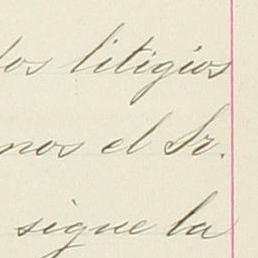 los litigios
nos el Sr.
sigue la